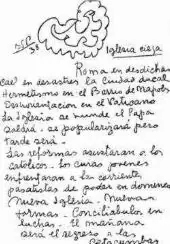 Iglesia vieja
Roma en desdichas
Cae en desastres la ciudad ducal
Hermetismo en el Barrio de Napols
Desorientacion en el Vaticano
La Iglesia se hunde el Papa
saldrá - se popularizará pero
tarde será -
Las reformas asustaran a los
católicos - Los curas jovenes
enfrentaran a las corrientes
de poder en domenes
Nueva Iglesia - Nuevas
formas - Conciliabulos en
luchas. El mañana
será el regreso a las
catacumbas